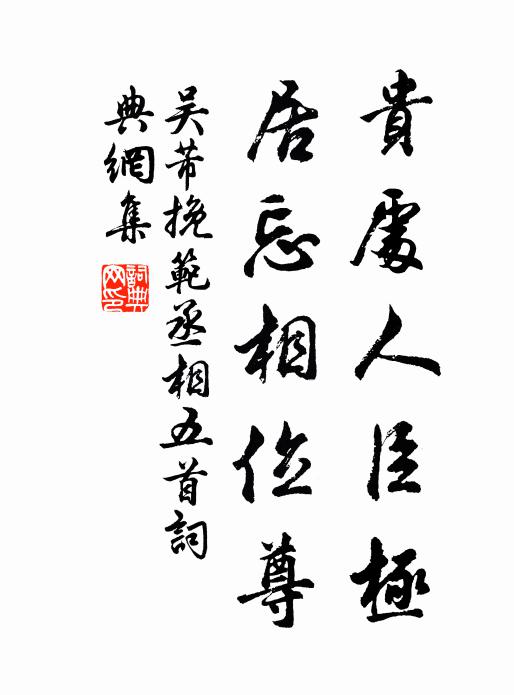 貴處人臣極
居忘相位尊
吳芾挽範丞相五首詞
典網集
詞典網印